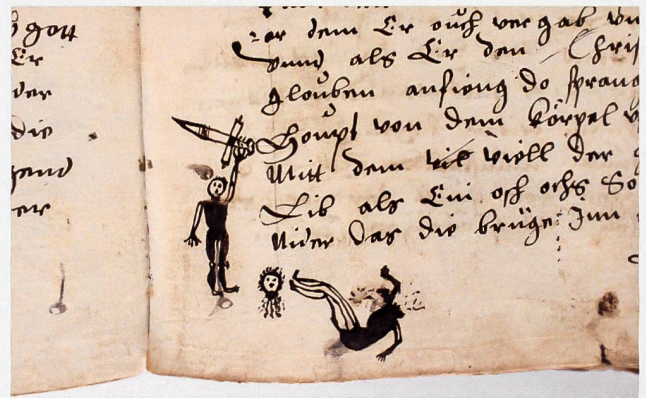 gott
Er
der
die
Er dem Er ouch vergab vn
vnnd als Er den Chris
glouben anfieng do sprang
Houpt von dem körpel v
Mitt dem vil der
Lib als Ein och ochs So
Nider das die brüge Inn